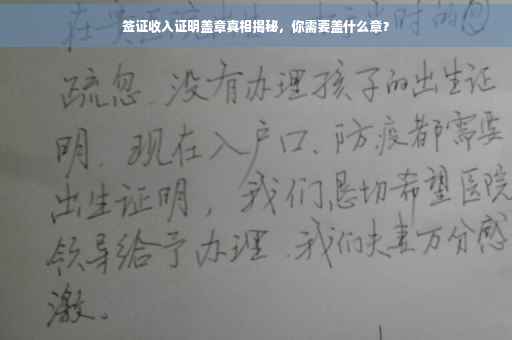 签证收入证明盖章真相揭秘，你需要盖什么章？
疏忽.没有办理孩子的出生证
明.现在入户口、防疫都需要
出生证明，我们恳切希望医院
领导给予办理.我们夫妻万分感
激。